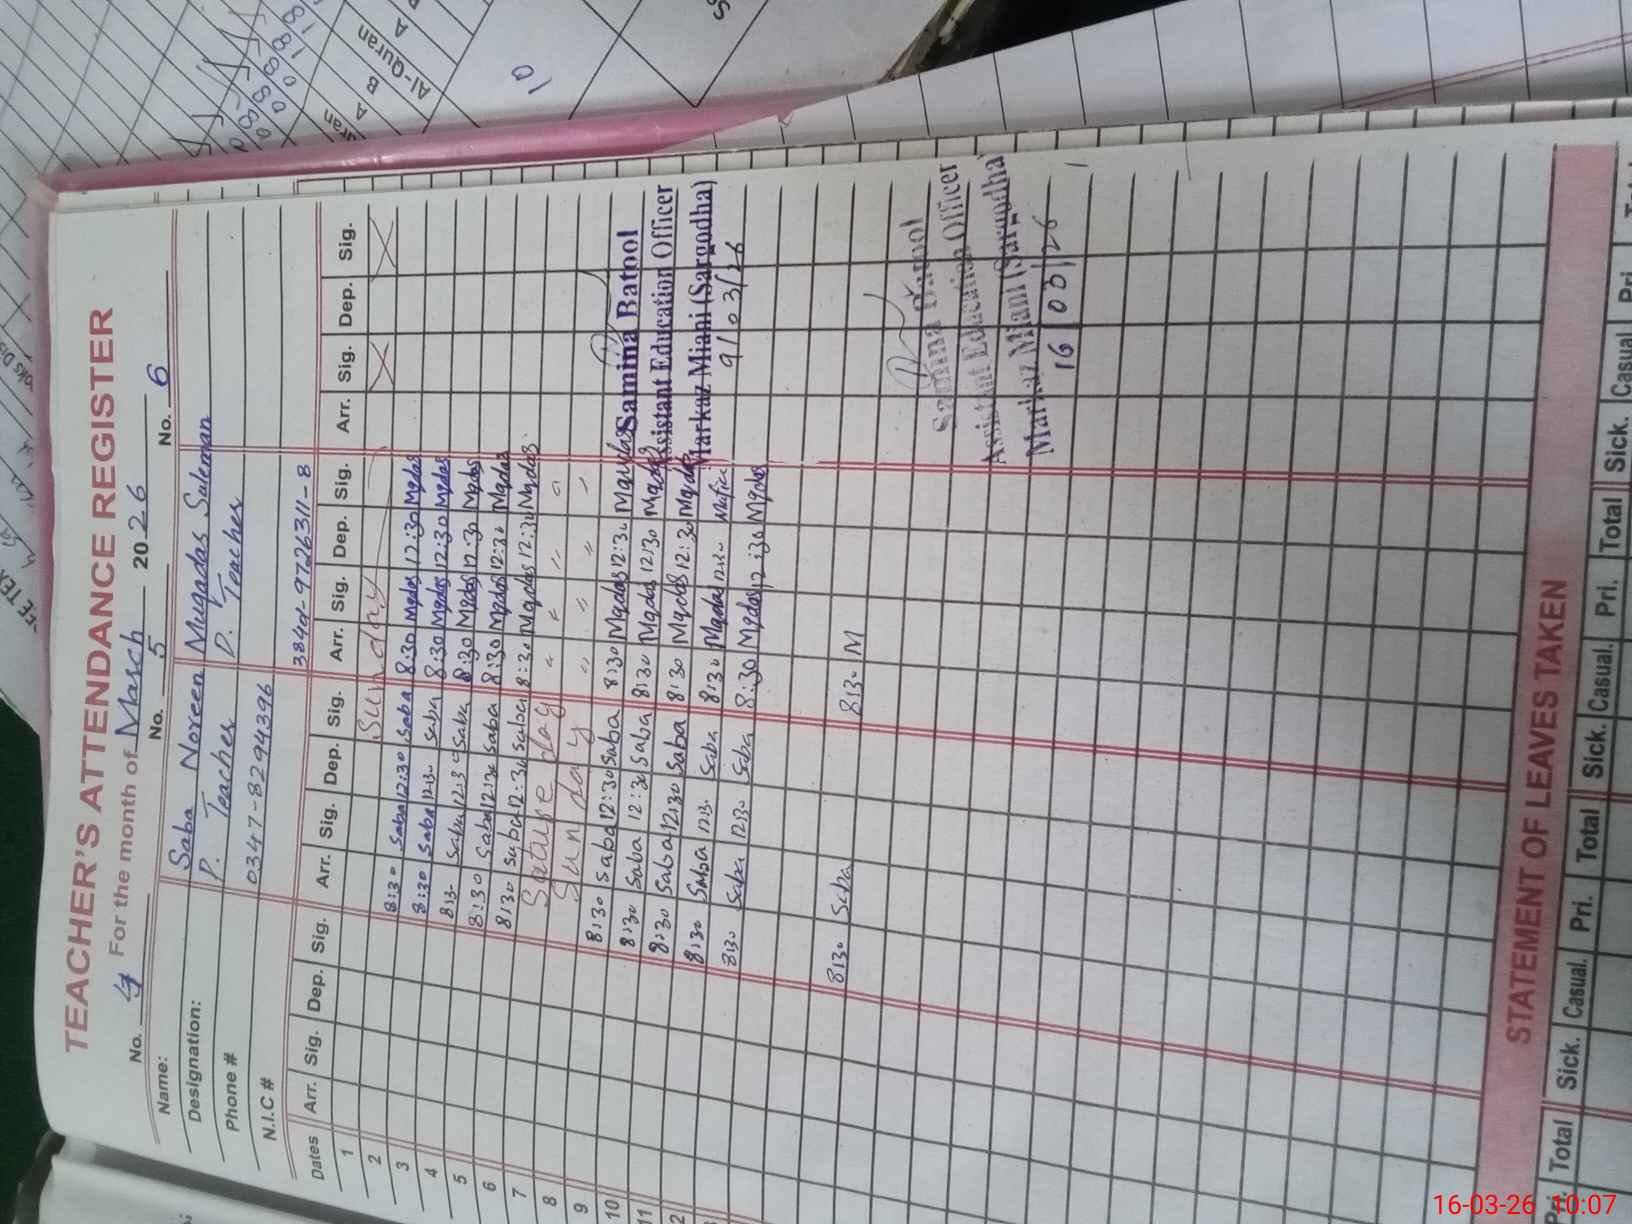 TEACHER'S ATTENDANCE REGISTER
No. 4 For the month of March 2026
No. 5 No. 6
Name: Saba Noreen Muqadas Suleman
Designation: P. T Teacher P. T Teacher
Phone # 0347-8294396
N.I.C # 38401-9726311-8
Dates Arr. Sig. Dep. Sig. Arr. Sig. Dep. Sig. Arr. Sig. Dep. Sig. Arr. Sig. Dep. Sig.
1 Sunday
2 8:30 Saba 12:30 Saba 8:30 Mqdas 12:30 Mqdas
3 8:30 Saba 12:30 Saba 8:30 Mqdas 12:30 Mqdas
4 8:30 Saba 12:30 Saba 8:30 Mqdas 12:30 Mqdas
5 8:30 Saba 12:30 Saba 8:30 Mqdas 12:30 Mqdas
6 8:30 Saba 12:30 Saba 8:30 Mqdas 12:30 Mqdas
7 Sature day " " " "
8 Sunday " " " "
9 8:30 Saba 12:30 Saba 8:30 Mqdas 12:30 Mqdas
10 8:30 Saba 12:30 Saba 8:30 Mqdas 12:30 Mqdas
11 8:30 Saba 12:30 Saba 8:30 Mqdas 12:30 Mqdas
8:30 Saba 12:30 Saba 8:30 Mqdas 12:30
8:30 Saba 12:30 Saba 8:30 Mqdas 12:30 Mqdas
8:30 Saba 8:30 M
Samina Batool
Assistant Education Officer
Markaz Miani (Sargodha)
9/03/26
Samina Batool
Assistant Education Officer
Markaz Miani (Sargodha)
16/03/26
STATEMENT OF LEAVES TAKEN
Pri. Total Sick. Casual. Pri. Total Sick. Casual. Pri. Total Sick. Casual Pri.
Al-Quran
A B A
10
16-03-26 10:07